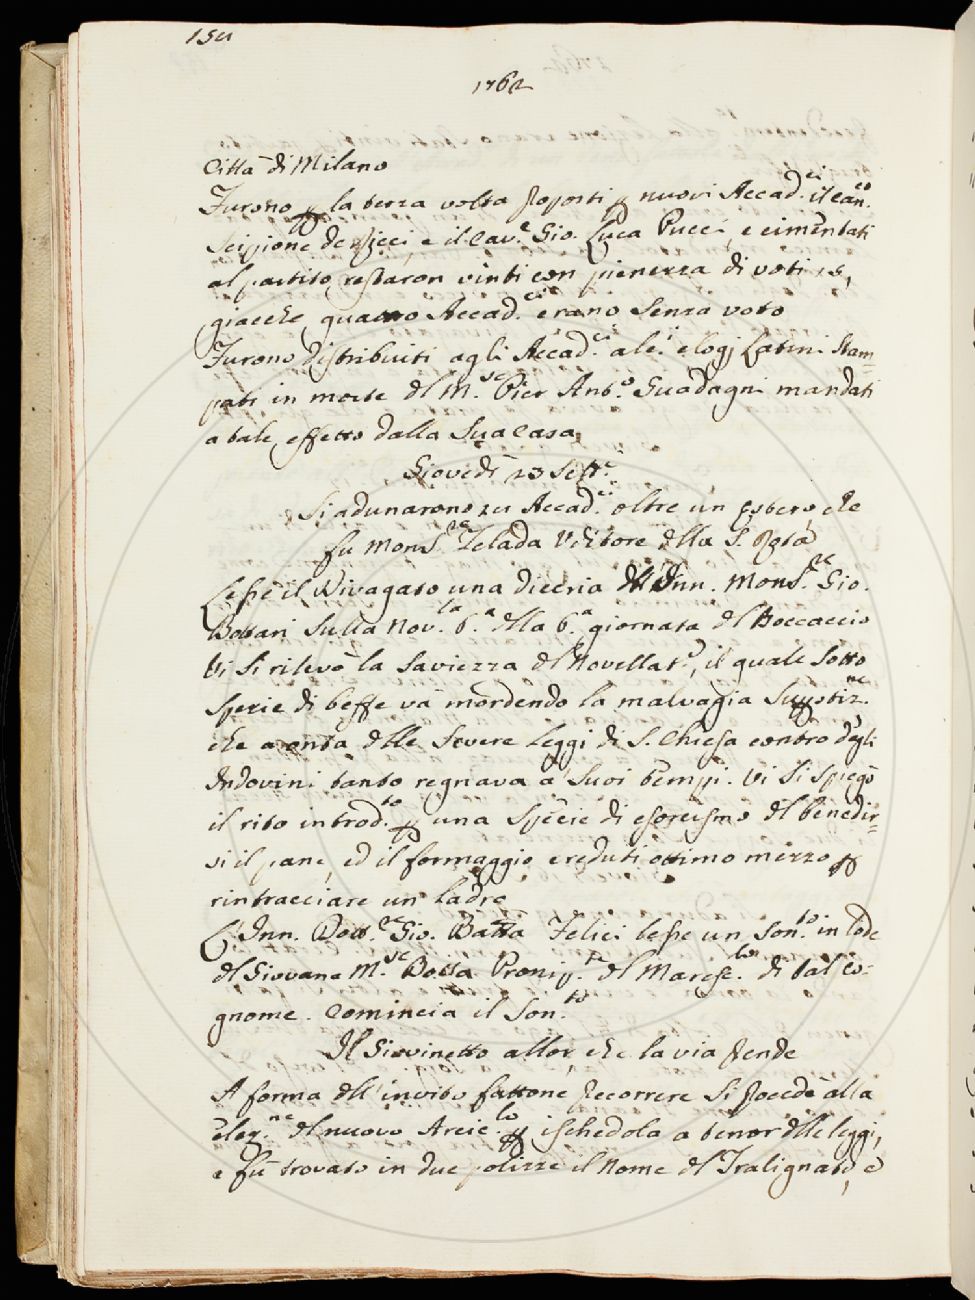 1762
Città di Milano
Furono p la terza volta proposti p nuovi Accad.ci il can.co
Scipione de Ricci, e il Cav.e Gio. Luca Pucci, e cimentati
al partito, restaron vinti con pienezza di voti 15,
giacche quattro Accad.ci erano senza voto
Furono distribuiti agli Accad.ci elogj Latini stam=
pati in morte dl M.se Pier Ant.o Guadagni mandati
a tale effetto dalla sua casa
Giovedì 23 Sett.e
Si adunarono Accad.ci oltre un estero, che
fu Mons.re Zelada Uditore dlla S. Rota
Lesse il Divagato una diceria dll'Inn. Mons.re Gio.
Bottari sulla Nov.la 6.a dlla 6.a giornata dl Boccaccio
Vi si rilevò la saviezza dl Novellat.e, il quale sotto
spezie di beffe và mordendo la malvagia supstiz.ne
che a onta dlle severe leggi di S. Chiesa contro dgli
Indovini tanto regnava a' suoi tempi. Vi si spiegò
il rito introd.to p una specie di esorcismo dl benedir=
si il pane, ed il formaggio creduti ottimo mezzo p
rintracciare un ladro
L'Inn. Dott.re Gio. Batta Felici lesse un son.to in lode
dl Giovane M.se Botta Pronip.e dl Maresc.lo di tal co=
gnome. Comincia il Son.to
Il Giovinetto allor, che la via prende
A forma dll'invito fattone precorrere si procedè alla
elez.ne dl nuovo Arcic.lo p ischedola a tenor dlle leggi,
e fù trovato in due polizze il nome dl Tralignato, e